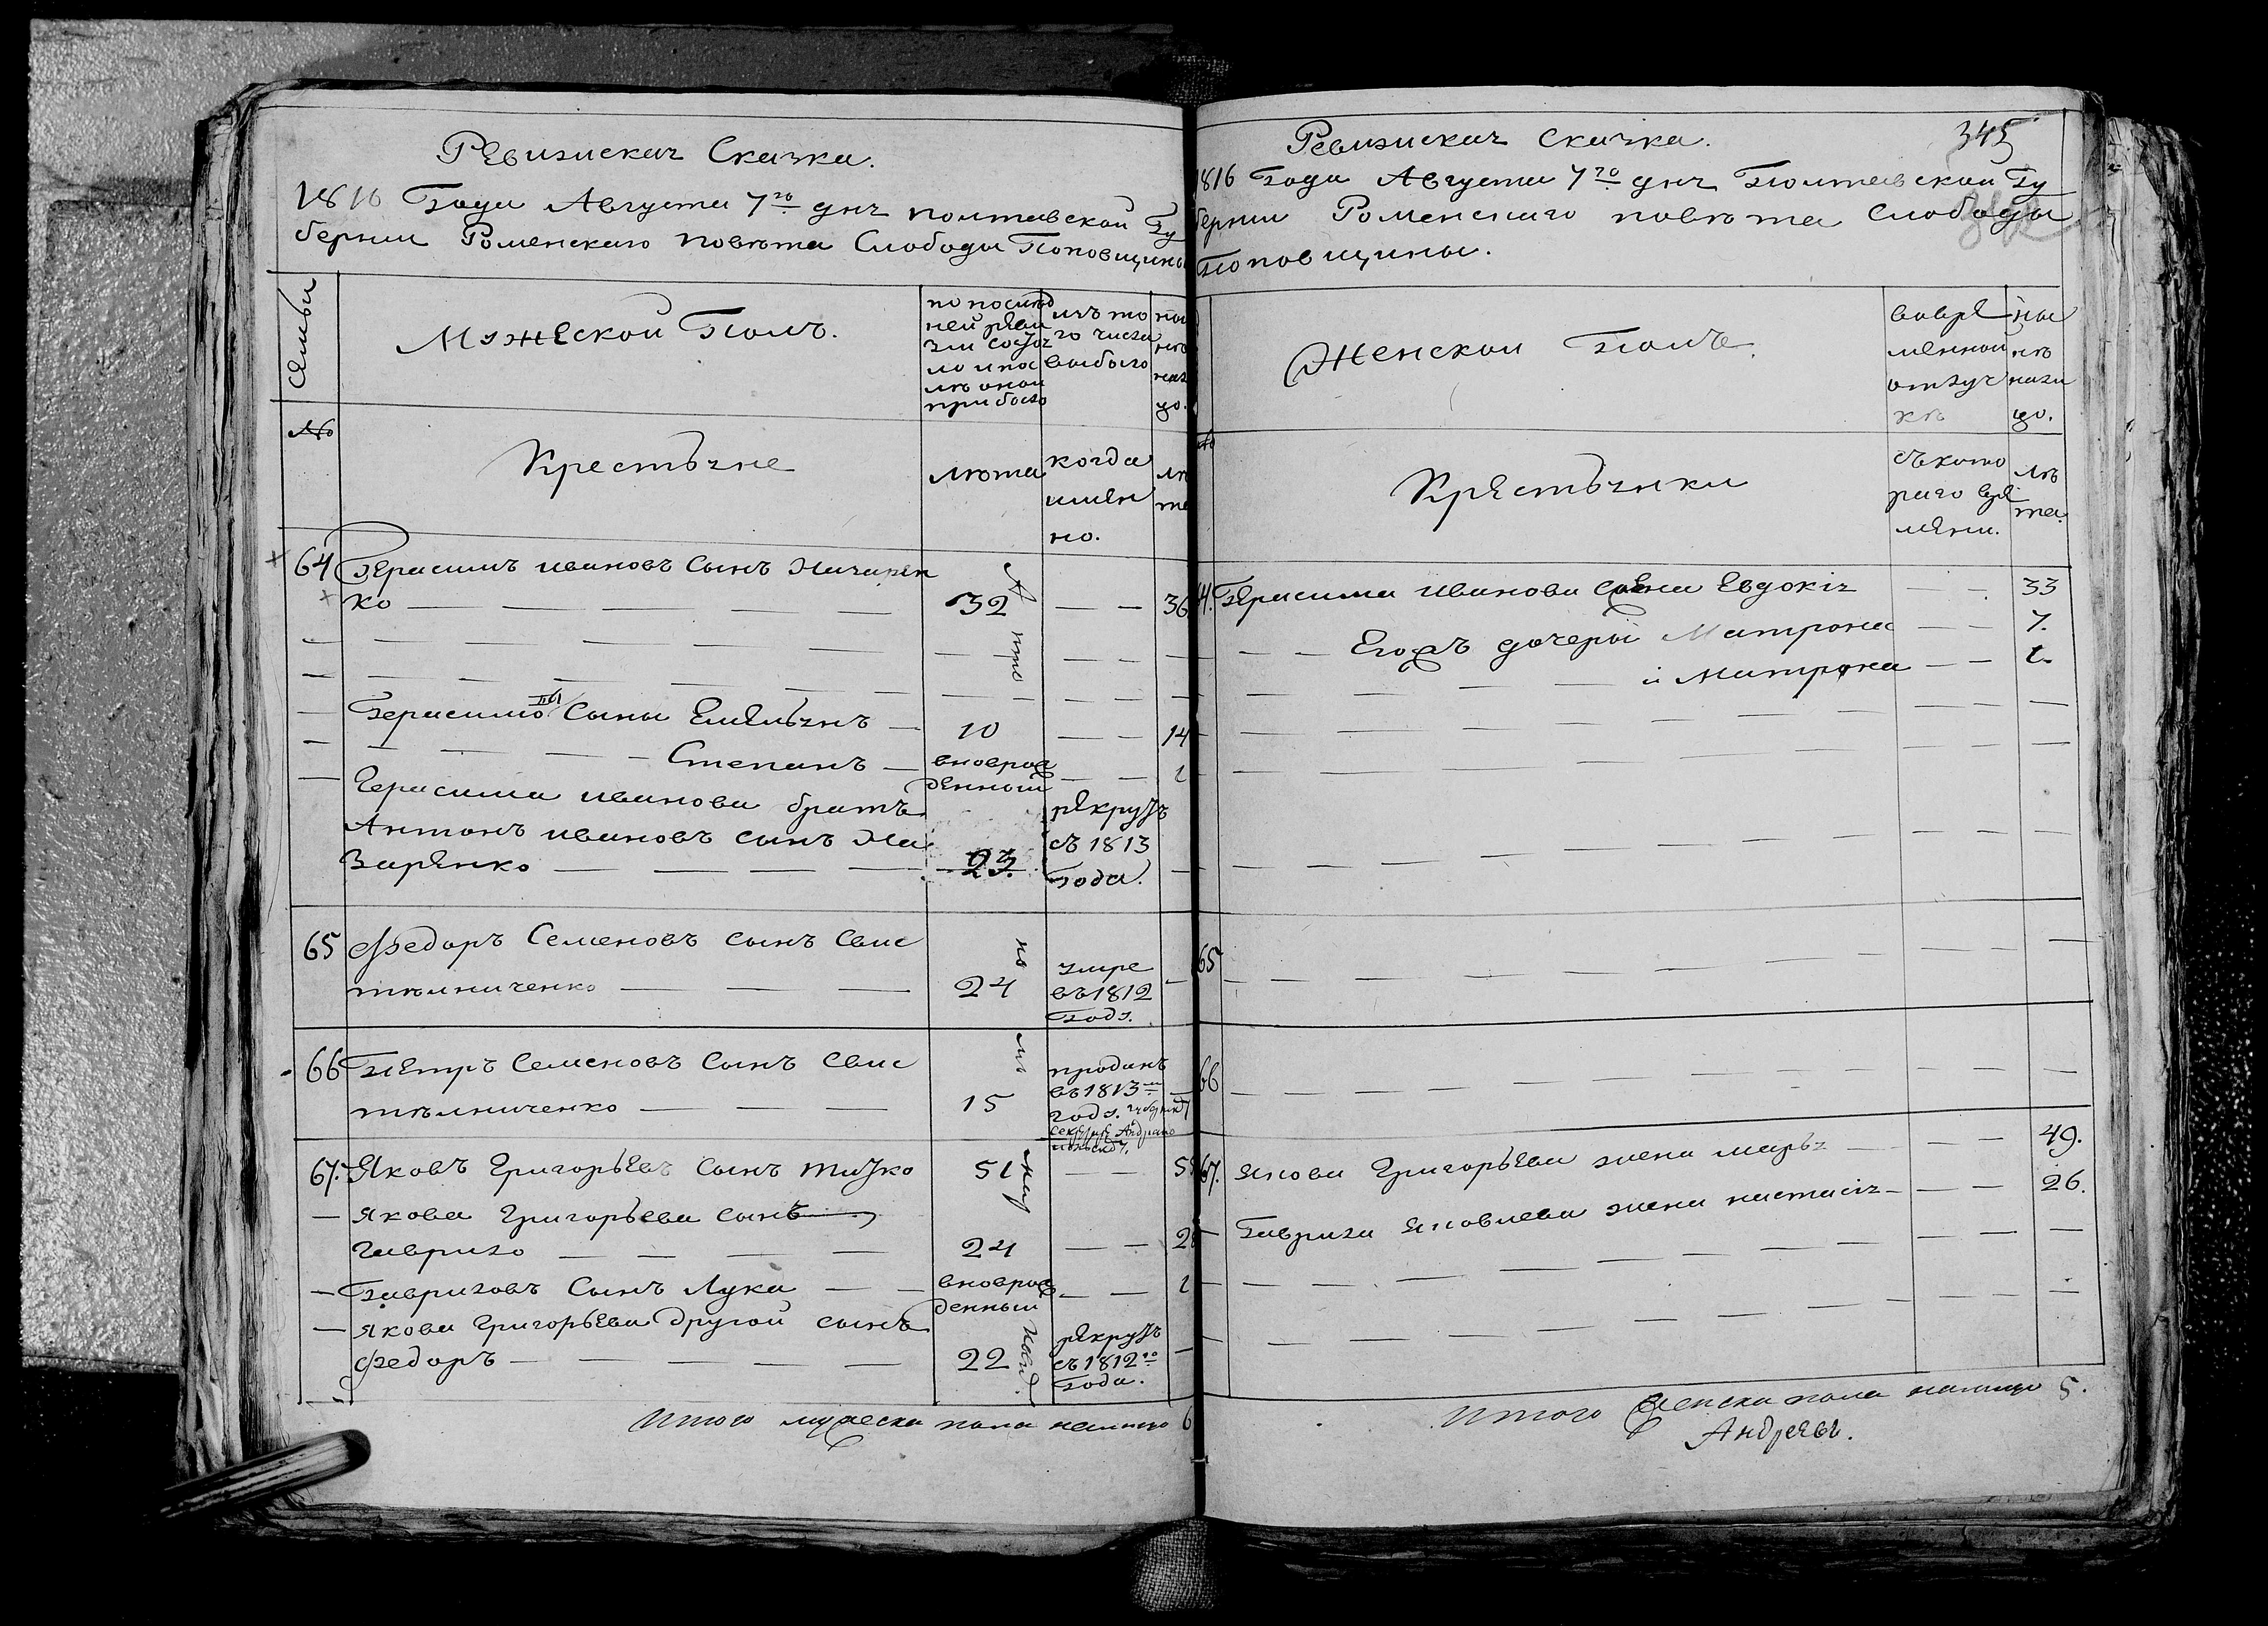 Ревизиская Сказка.
1816 Года Августа 7го дня полтавской Гу
бернии Роменскаго повѣта Слободы Поповщины
Семьи
Мужеской Полъ.
по послѣд
ней реви
зіи состоя
ло и пос
лѣ оной
прибыло
изъ то
го числа
выбыло
ны
нѣ
на
цо.
№
Крестьяне
лѣта
когда
имен
но.
лѣ
та
64 Герасимъ ивановъ Сынъ Назарен
ко 32 36
Герасимовы Сыны Емельянъ 10 14
Степанъ вноврож
денный 1
Герасима иванова братъ
Антонъ ивановъ сынъ На
заренко 23. рекрутъ
съ 1813
Года.
65 Федоръ Семеновъ сынъ Свис
тѣлниченко 24 умре
въ 1812
Году.
66 Петръ Семеновъ Сынъ Свис
тѣлниченко 15 проданъ
въ 1813м
году.
67. Яковъ Григорьевъ Сынъ титко 51
Якова Григорьева сынъ
гаврило 24
Гавриловъ Сынъ Лука вноврож
денный 1
Якова Григорьева другой сынъ
Федоръ 22 рекрутъ
съ 1812го
Года.
Итого мужеска пола налицо 6
Ревизиская Сказка. 345
1816 Года Августа 7го дня Полтавской Гу
берніи Роменскаго повѣта Слободы
Поповщины.
Женской Полъ.
вовре
менной
отлуч
кѣ
ны
нѣ
нали
цо.
№
Крестьянки
съ кото
раго вре
мени.
лѣ
та.
64. Герасима Иванова жена Евдокія 33
Егожъ дочеры Матрона 7.
и Матрона 1.
65
66
67. Якова Григорьева жена марья 49.
Гаврила Яковлева жена настасія 26.
Итого женска пола налицо 5.
Андреевъ.